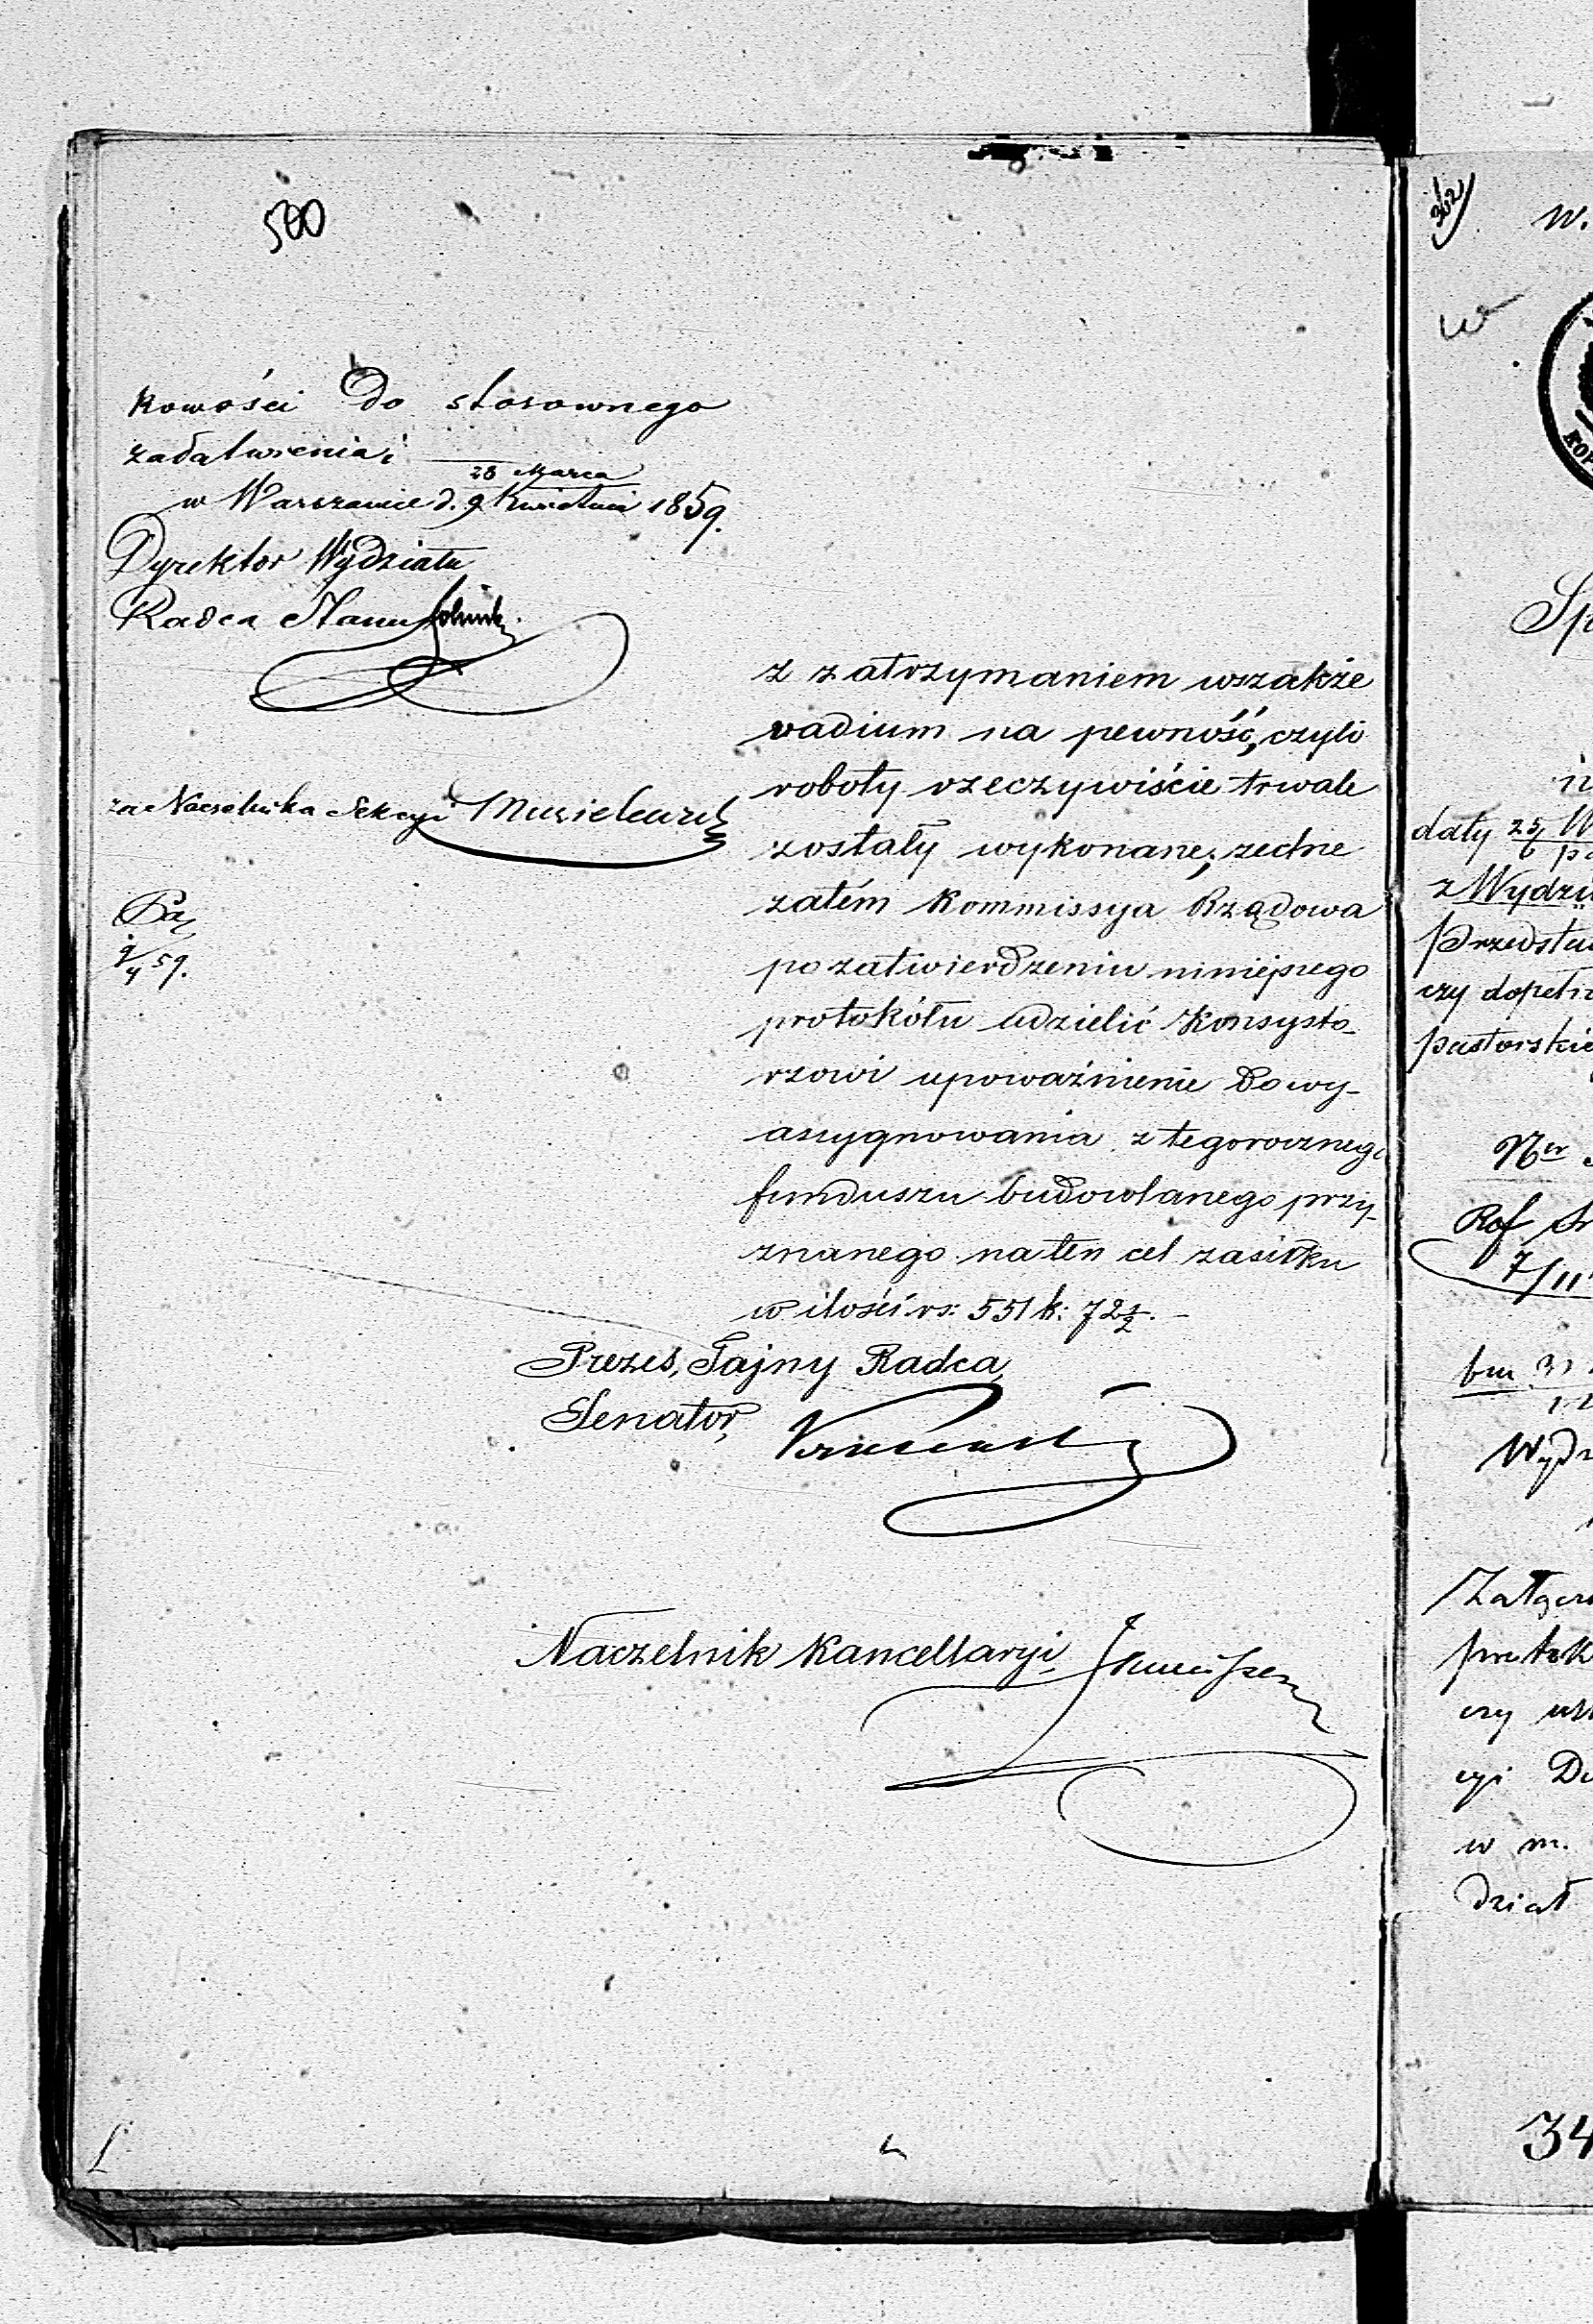 500
kowości do stosownego
zadatwienia;
w Warszawie d. 28 Marca / 9 Kwietnia 1859.
Dyrektor Wydziału
Radca Stanu
za Naczelnika Sekcyi
9/4 59.
z zatrzymaniem wszakże
vadium na pewność, czyli
roboty rzeczywiście trwale
zostały wykonane; zechce
zatém Kommissya Rządowa
po zatwierdzeniu niniejszego
protokółu udzielić Konsysto-
rzowi upoważnienie do wy-
assygnowania z tegorocznego
funduszu budowlanego przy-
znanego na ten cel zasiłku
w ilości rs: 551 k: 72 1/2. –
Prezes, Tajny Radca,
Senator,
Naczelnik Kancellaryi
302
w.
w
Sp
daty 25/6
z Wydzi
przedsta
czy dopełn
pastorskie
Ner
7/11
Wydz
czy
cyi
w m.
dział
34